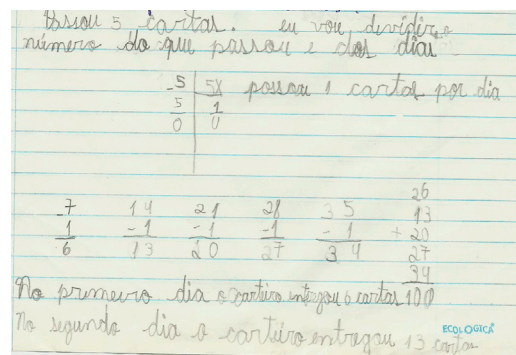 Passou 5 cartas. eu vou dividir o
número do que passou e dos dias
-5 | 5x passou 1 cartas por dia
5 1
0 0
26
-7 14 21 28 35 13
1 -1 -1 -1 -1 + 20
6 13 20 27 34 27
34
No primeiro dia o carteiro entregou 6 cartas 100
No segundo dia o carteiro entregou 13 cartas
ECOLOGICA